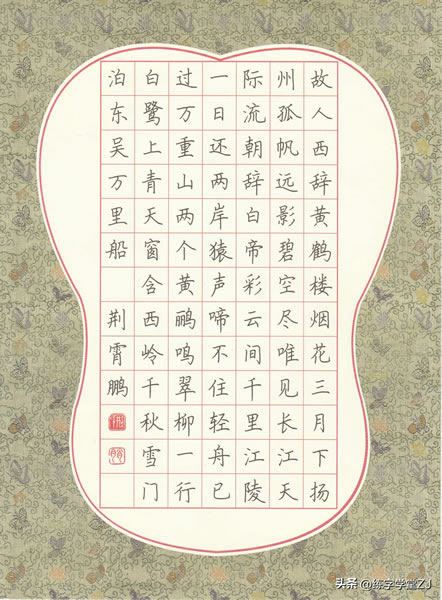 故人西辞黄鹤楼烟花三月下扬
州孤帆远影碧空尽唯见长江天
际流朝辞白帝彩云间千里江陵
一日还两岸猿声啼不住轻舟已
过万重山两个黄鹂鸣翠柳一行
白鹭上青天窗含西岭千秋雪门
泊东吴万里船 荆霄鹏
头条 @练字学堂ZJ